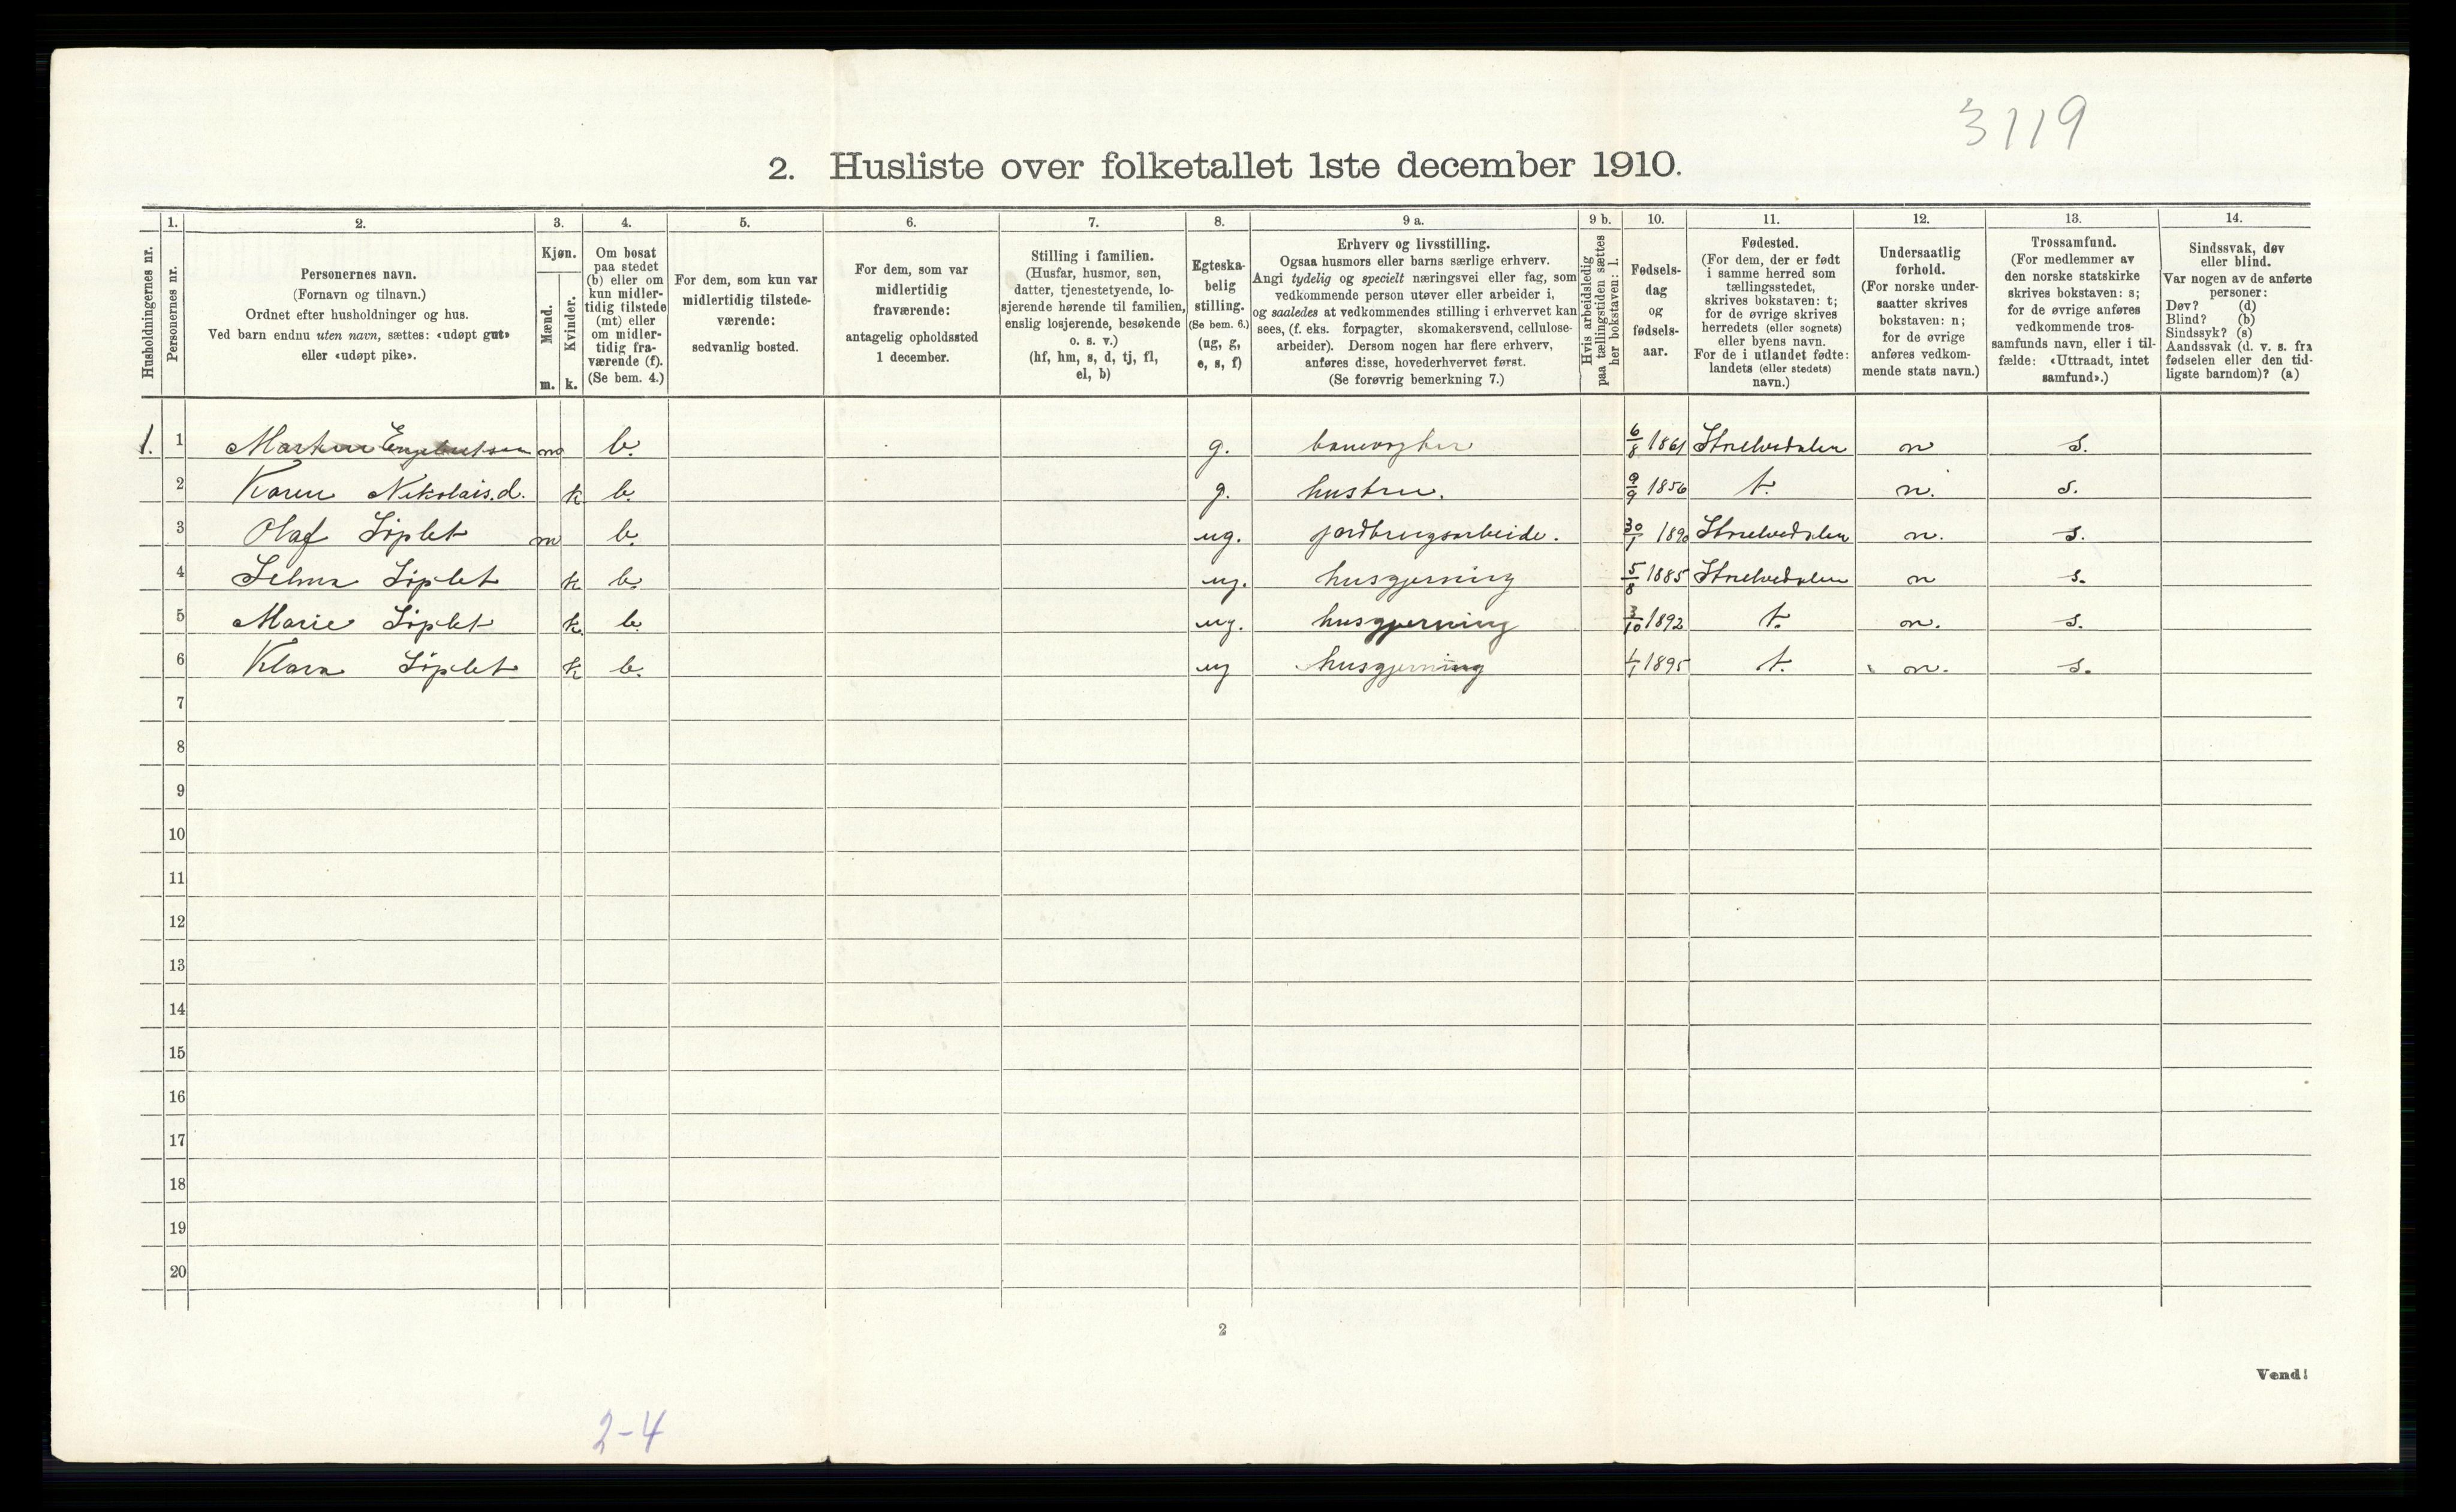 3119
2. Husliste over folketallet 1ste december 1910.
Husholdningernes nr.
1.
Personernes nr.
2.
Personernes navn.
(Fornavn og tilnavn.)
Ordnet efter husholdninger og hus.
Ved barn endnu uten navn, sættes: «udøpt gut»
eller «udøpt pike».
3.
Kjøn.
Mænd.
Kvinder.
m. k.
4.
Om bosat
paa stedet
(b) eller om
kun midler-
tidig tilstede
(mt) eller
om midler-
tidig fra-
værende (f).
(Se bem. 4.)
5.
For dem, som kun var
midlertidig tilstede-
værende:
sedvanlig bosted.
6.
For dem, som var
midlertidig
fraværende:
antagelig opholdssted
1 december.
7.
Stilling i familien.
(Husfar, husmor, søn,
datter, tjenestetyende, lo-
sjerende hørende til familien,
enslig losjerende, besøkende
o. s. v.)
(hf, hm, s, d, tj, fl,
el, b)
8.
Egteska-
belig
stilling.
(Se bem. 6.)
(ug, g,
e, s, f)
9 a.
Erhverv og livsstilling.
Ogsaa husmors eller barns særlige erhverv.
Angi tydelig og specielt næringsvei eller fag, som
vedkommende person utøver eller arbeider i,
og saaledes at vedkommendes stilling i erhvervet kan
sees, (f. eks. forpagter, skomakersvend, cellulose-
arbeider). Dersom nogen har flere erhverv,
anføres disse, hovederhvervet først.
(Se forøvrig bemerkning 7.)
9 b.
Hvis arbeidsledig
paa tællingstiden sættes
her bokstaven: l.
10.
Fødsels-
dag
og
fødsels-
aar.
11.
Fødested.
(For dem, der er født
i samme herred som
tællingsstedet,
skrives bokstaven: t;
for de øvrige skrives
herredets (eller sognets)
eller byens navn.
For de i utlandet fødte:
landets (eller stedets)
navn.)
12.
Undersaatlig
forhold.
(For norske under-
saatter skrives
bokstaven: n;
for de øvrige
anføres vedkom-
mende stats navn.)
13.
Trossamfund.
(For medlemmer av
den norske statskirke
skrives bokstaven: s;
for de øvrige anføres
vedkommende tros-
samfunds navn, eller i til-
fælde: «Uttraadt, intet
samfund».)
14.
Sindssvak, døv
eller blind.
Var nogen av de anførte
personer:
Døv? (d)
Blind? (b)
Sindssyk? (s)
Aandssvak (d. v. s. fra
fødselen eller den tid-
ligste barndom)? (a)
1. 1 Martin Engebretsen m b. g. banevogter 6/8 1861 Storelvedalen n s.
2 Karen Nikolais.d. k b. g. hustru. 9/9 1856 t. n. s.
3 Olaf Löplet m b. ug. jordbrugsarbeide. 30/1 1890 Storelvedalen n. s.
4 Selma Löplet k b. ug. husgjerning 5/8 1885 Storelvedalen n s.
5 Marie Löplet k. b. ug. husgjerning 3/10 1892 t. n. s.
6 Klara Löplet k b. ug husgjerning 1/1 1895 t. n. s.
7
8
9
10
11
12
13
14
15
16
17
18
19
20
2
Vend!
2-4